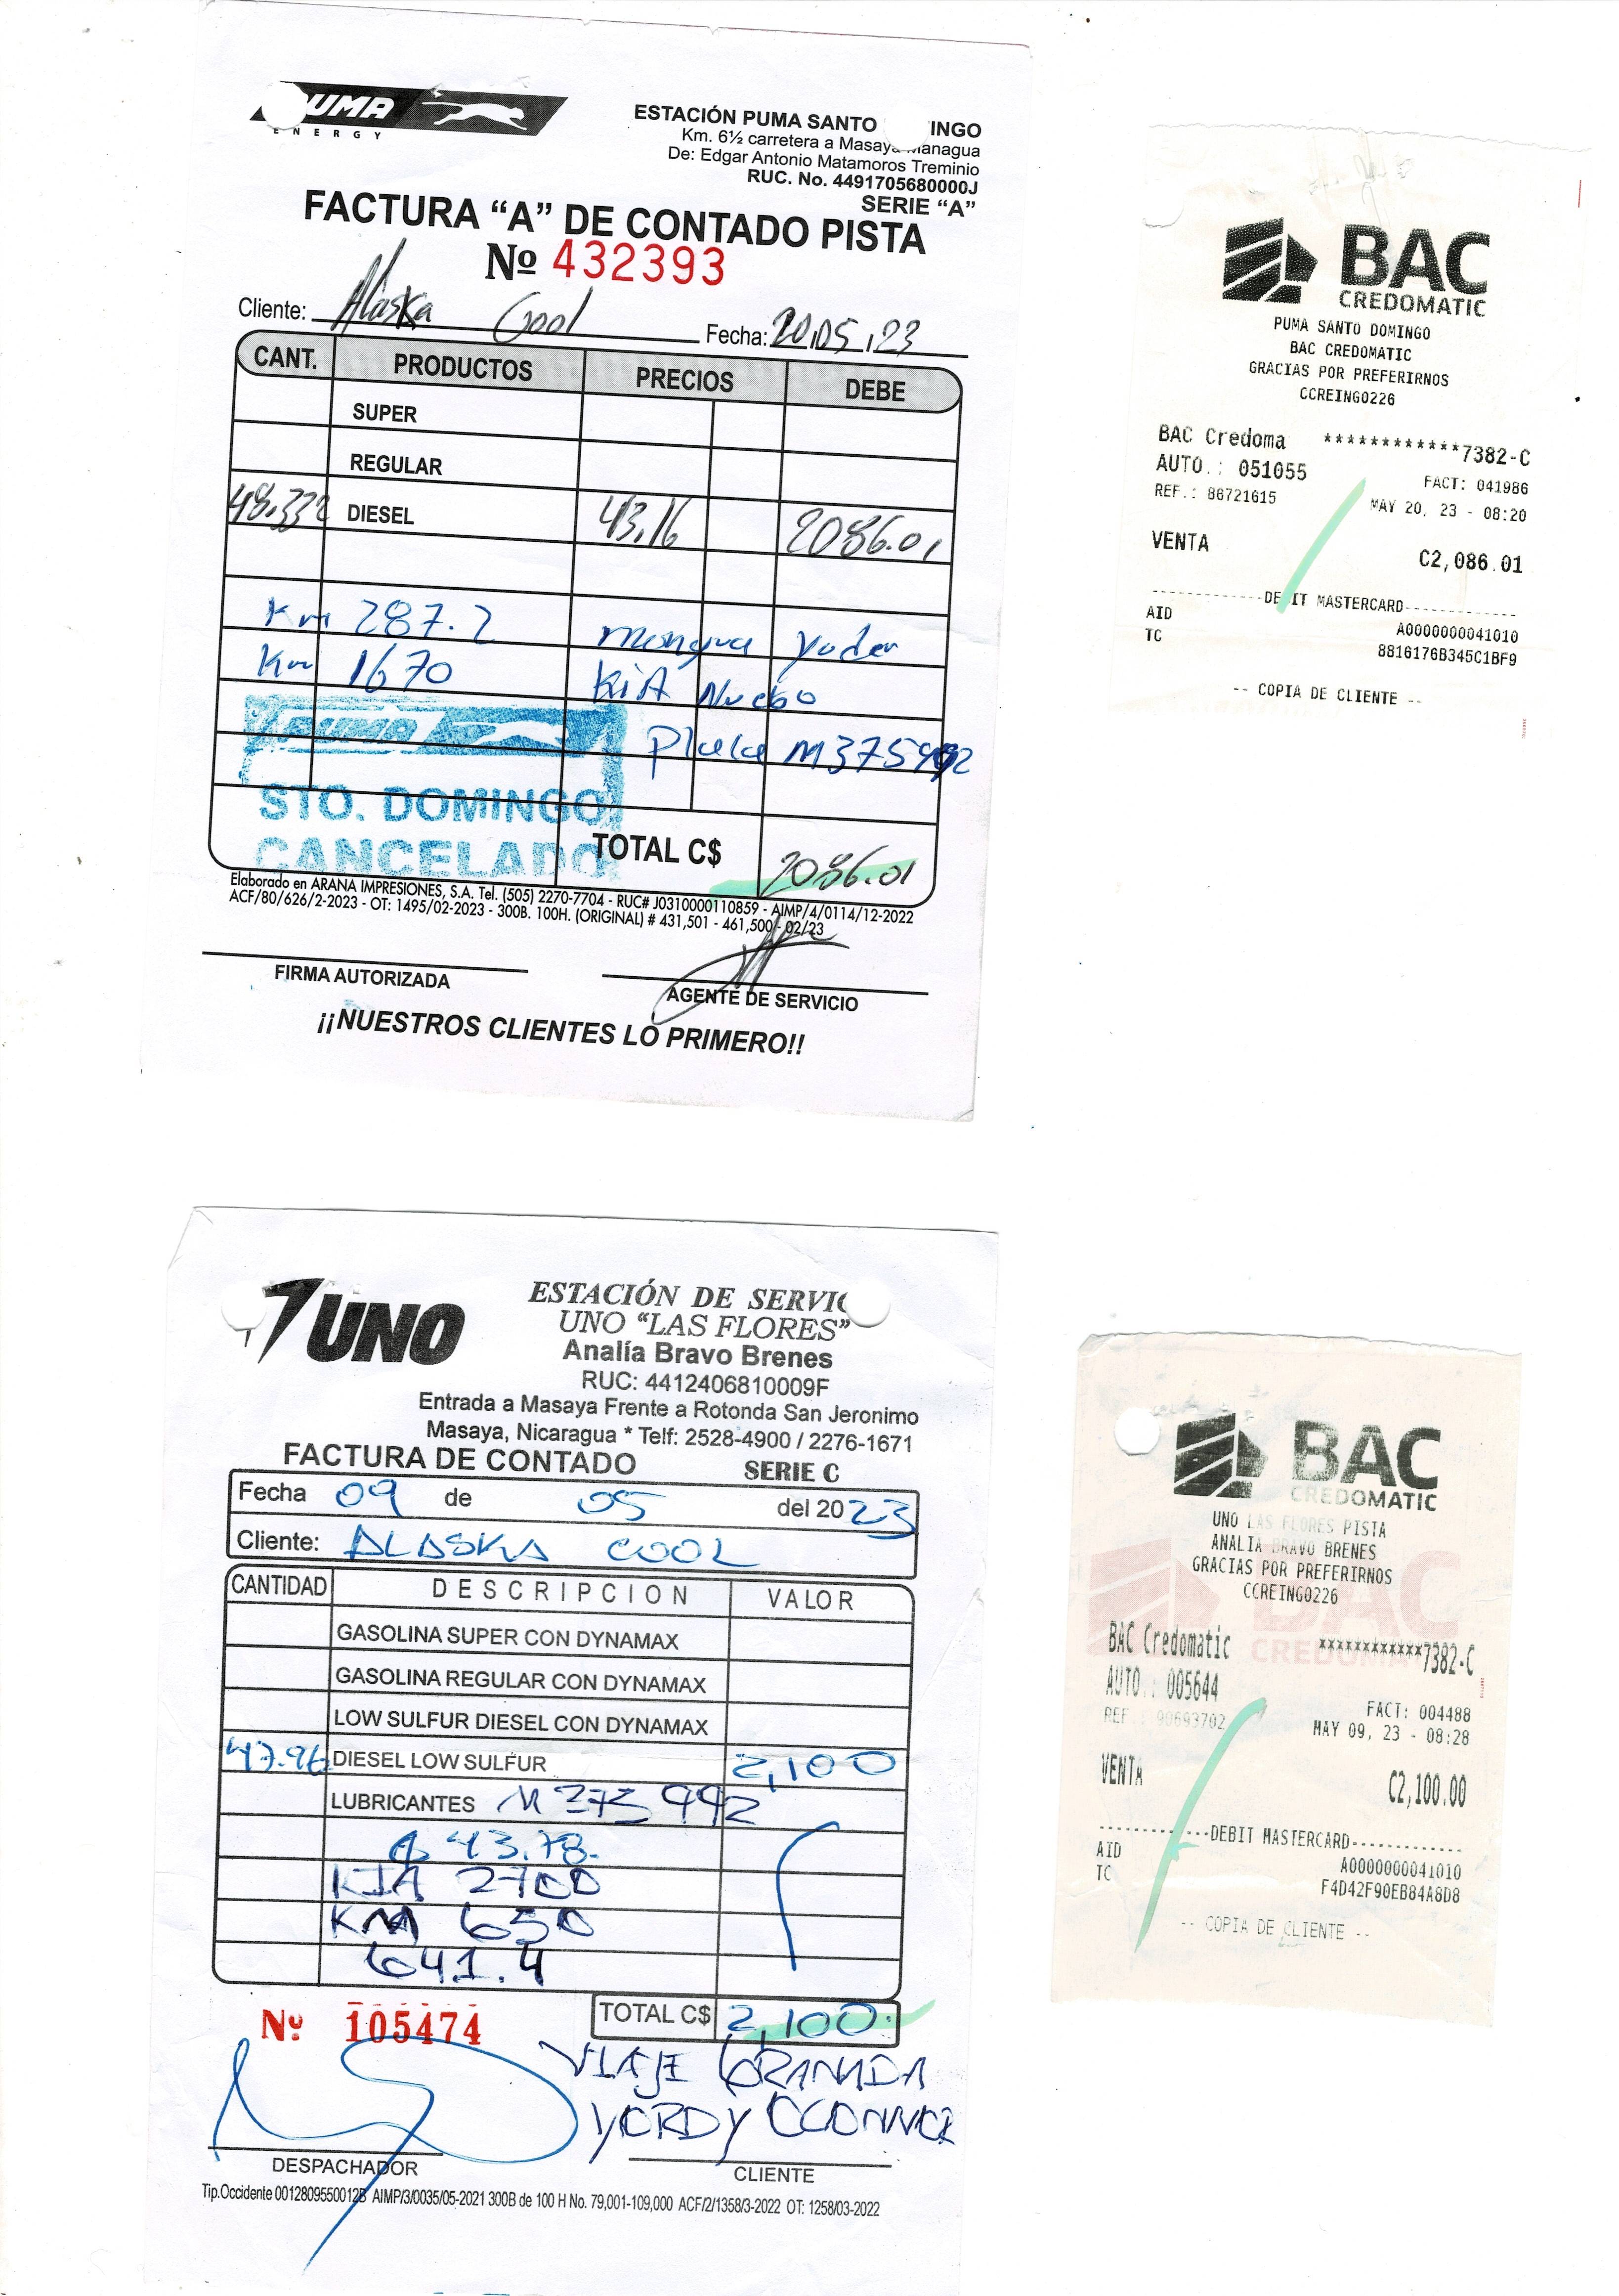 PUMA
ENERGY
ESTACIÓN PUMA SANTO INGO
Km. 6½ carretera a Masaya Managua
De: Edgar Antonio Matamoros Treminio
RUC. No. 4491705680000J
SERIE “A”
FACTURA “A” DE CONTADO PISTA
Nº 432393
Cliente: Alaska Cool Fecha: 20,05,23
CANT. PRODUCTOS PRECIOS DEBE
SUPER
REGULAR
48.332 DIESEL 43.16 2086.01
Km 287.2
Km 1670 KIA Nuebo
PUMA
Placa M375992
STO. DOMINGO
CANCELADO
TOTAL C$ 2086.01
Elaborado en ARANA IMPRESIONES, S.A. Tel. (505) 2270-7704 - RUC# J0310000110859 - AIMP/4/0114/12-2022
ACF/80/626/2-2023 - OT: 1495/02-2023 - 300B. 100H. (ORIGINAL) # 431,501 - 461,500 - 02/23
FIRMA AUTORIZADA AGENTE DE SERVICIO
¡¡NUESTROS CLIENTES LO PRIMERO!!
BAC
CREDOMATIC
PUMA SANTO DOMINGO
BAC CREDOMATIC
GRACIAS POR PREFERIRNOS
CCREING0226
BAC Credoma ************7382-C
AUTO.: 051055 FACT: 041986
REF.: 86721615 MAY 20, 23 - 08:20
VENTA C2,086.01
------------DEBIT MASTERCARD------------
AID A0000000041010
TC 8816176B345C1BF9
-- COPIA DE CLIENTE --
UNO
ESTACIÓN DE SERVIC
UNO “LAS FLORES”
Analía Bravo Brenes
RUC: 4412406810009F
Entrada a Masaya Frente a Rotonda San Jeronimo
Masaya, Nicaragua * Telf: 2528-4900 / 2276-1671
FACTURA DE CONTADO SERIE C
Fecha 09 de 05 del 2023
Cliente: ALASKA COOL
CANTIDAD DESCRIPCION VALOR
GASOLINA SUPER CON DYNAMAX
GASOLINA REGULAR CON DYNAMAX
LOW SULFUR DIESEL CON DYNAMAX
47.96 DIESEL LOW SULFUR 2,100
LUBRICANTES M 375 992
43.78.
KIA 2700
KM 650
641.4
Nº 105474 TOTAL C$ 2,100.
VIAJE GRANADA
YORDY OCONNOR
DESPACHADOR CLIENTE
Tip.Occidente 0012809550012B AIMP/3/0035/05-2021 300B de 100 H No. 79,001-109,000 ACF/2/1358/3-2022 OT: 1258/03-2022
BAC
CREDOMATIC
UNO LAS FLORES PISTA
ANALIA BRAVO BRENES
GRACIAS POR PREFERIRNOS
CCREING0226
BAC Credomatic ************7382-C
AUTO.: 005644 FACT: 004488
REF.: 90693702 MAY 09, 23 - 08:28
VENTA C2,100.00
------------DEBIT MASTERCARD------------
AID A0000000041010
TC F4D42F90EB84A8D8
-- COPIA DE CLIENTE --